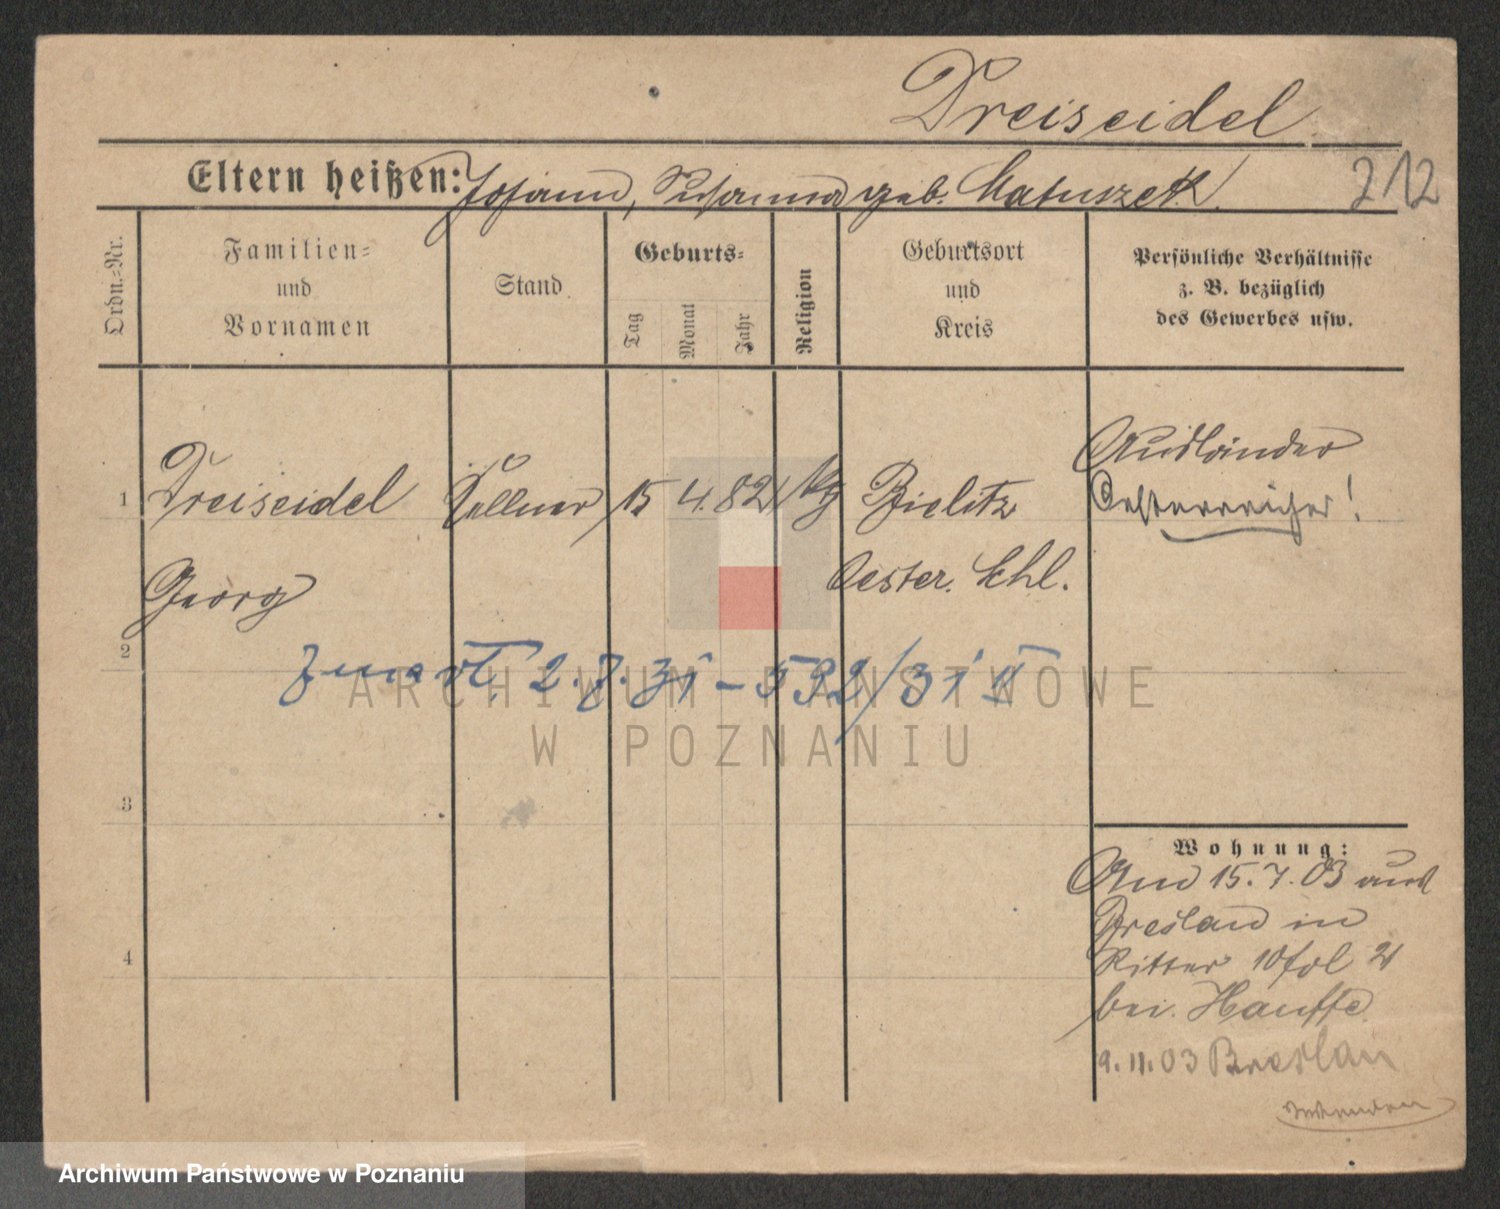 Dreiseidel
Eltern heißen: Johann, Susanna geb. Matuszek.
212
Ordn.=Nr.
Familien=
und
Vornamen
Stand
Geburts=
Tag
Monat
Jahr
Religion
Geburtsort
und
Kreis
Persönliche Verhältnisse
z. B. bezüglich
des Gewerbes usw.
1 Dreiseidel Kellner 15 4. 82 kg Bielitz
Oester. Schl.
Georg
Ausländer
Oesterreicher!
2
zmarł. 2.7.31 – 532/31 II
3
4
Wohnung:
Am 15.7.03 aus
Breslau in
Ritter 10 fol 21
bei Hauffe
9.11.03 Breslau
ARCHIWUM PAŃSTWOWE
W POZNANIU
Archiwum Państwowe w Poznaniu